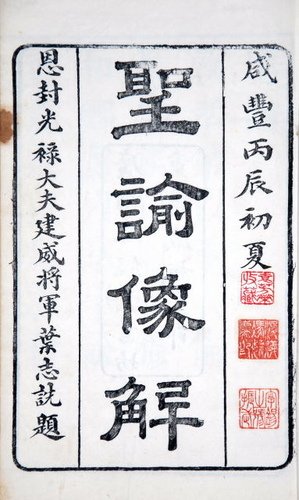 咸豐丙辰初夏
聖諭像解
恩封光祿大夫建威將軍葉志詵題